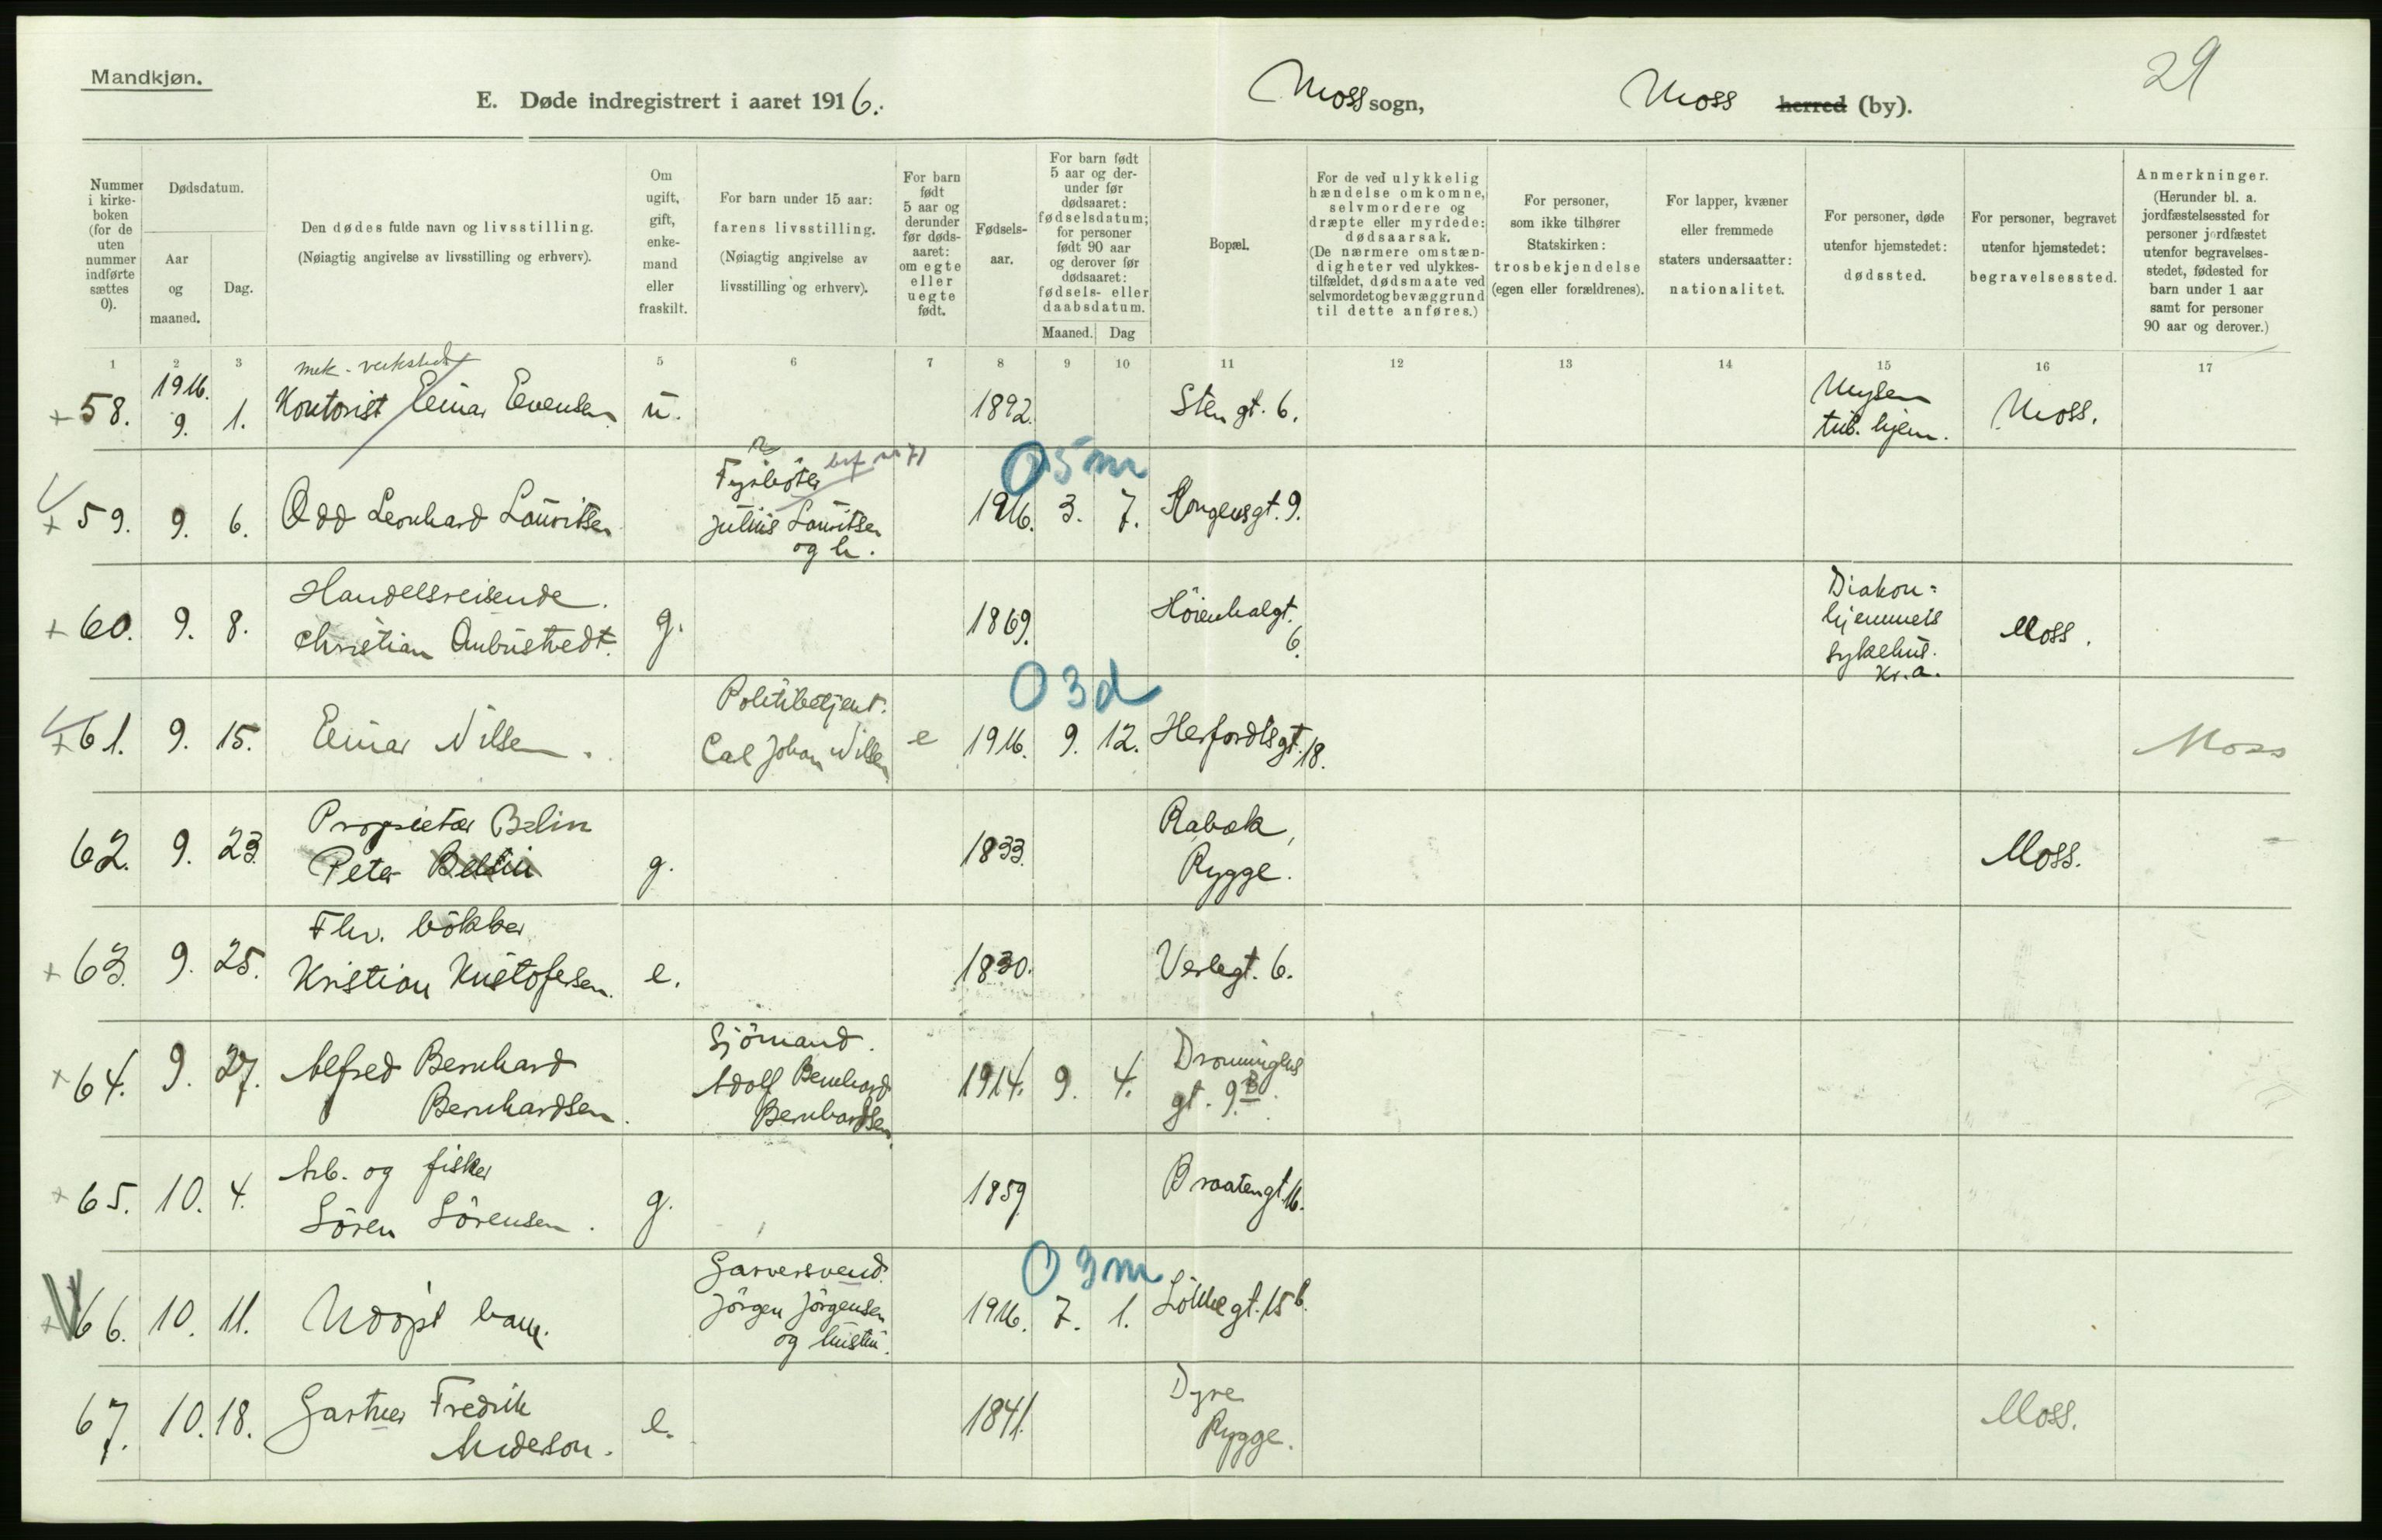 Mandkjøn.
29
E. Døde indregistrert i aaret 1916.
Moss sogn,
Moss herred (by).
Nummer i kirke-boken (for de uten nummer indførte sættes 0).
Dødsdatum.
Aar og maaned.
Dag.
Den dødes fulde navn og livsstilling.
(Nøiagtig angivelse av livsstilling og erhverv).
Om ugift, gift, enke-mand eller fraskilt.
For barn under 15 aar: farens livsstilling.
(Nøiagtig angivelse av livsstilling og erhverv).
For barn født 5 aar og derunder før døds-aaret: om egte eller uegte født.
Fødsels-aar.
For barn født 5 aar og der-under før dødsaaret: fødselsdatum; for personer født 90 aar og derover før dødsaaret: fødsels- eller daabsdatum.
Maaned. Dag
Bopæl.
For de ved ulykkelig hændelse omkomne, selvmordere og dræpte eller myrdede: dødsaarsak.
(De nærmere omstæn-digheter ved ulykkes-tilfældet, dødsmaate ved selvmordet og bevæggrund til dette anføres.)
For personer, som ikke tilhører Statskirken: trosbekjendelse (egen eller forældrenes).
For lapper, kvæner eller fremmede staters undersaatter: nationalitet.
For personer, døde utenfor hjemstedet: dødssted.
For personer, begravet utenfor hjemstedet: begravelsessted.
Anmerkninger.
(Herunder bl. a. jordfæstelsessted for personer jordfæstet utenfor begravelses-stedet, fødested for barn under 1 aar samt for personer 90 aar og derover.)
1 2 3 5 6 7 8 9 10 11 12 13 14 15 16 17
mek. verksted
+ 58. 1916. 9. 1. Kontorist Einar Evensen u. 1892. Stengt. 6. Mysen tub. hjem. Moss.
05m
+ 59. 9. 6. Odd Leonhard Lauritsen Fyrbøter Julius Lauritsen og h. 1916. 3. 7. Kongensgt. 9.
+ 60. 9. 8. Handelsreisende. Christian Aubustvedt. g. 1869. Höienhalgt. 6. Diakon= hjemmets sykehus. Kr.a. Moss.
03d
+ 61. 9. 15. Einar Nilsen. Politibetjent. Carl Johan Nilsen e 1916. 9. 12. Herfordtsgt. 18. Moss
62. 9. 23. Proprietær Belin Peter g. 1833. Rabæk, Rygge. Moss.
+ 63. 9. 25. Fhv. bökker Kristian Kristofersen. e. 1830. Verlegt. 6.
+ 64. 9. 27. Alfred Bernhard Bernhardsen. Sjömand. Adolf Bernhard Bernhardsen 1914. 9. 4. Dronningens gt. 9.B.
+ 65. 10. 4. Arb. og fisker Sören Sörensen. g. 1859 Braatengt. 16.
03m
+ 66. 10. 11. Udöpt barn. Garversvend. Jörgen Jörgensen og hustru. 1916. 7. 1. Lökkegt. 15 b.
67. 10. 18. Gartner Fredrik Anderson. e. 1841. Dyre Rygge. Moss.